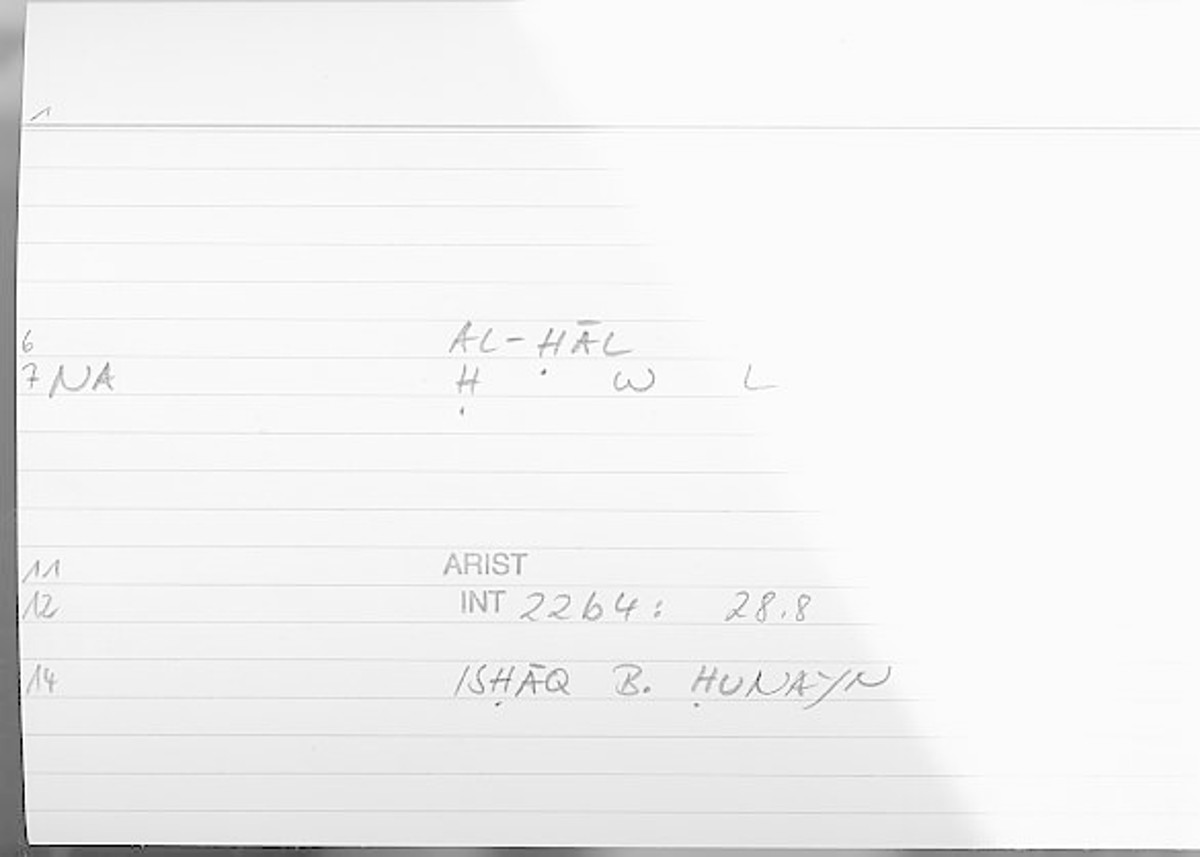 1
6 AL-ḤĀL
7 NA Ḥ W L
11 ARIST
12 INT 22b4: 28.8
14 ISḤĀQ B. ḤUNAYN